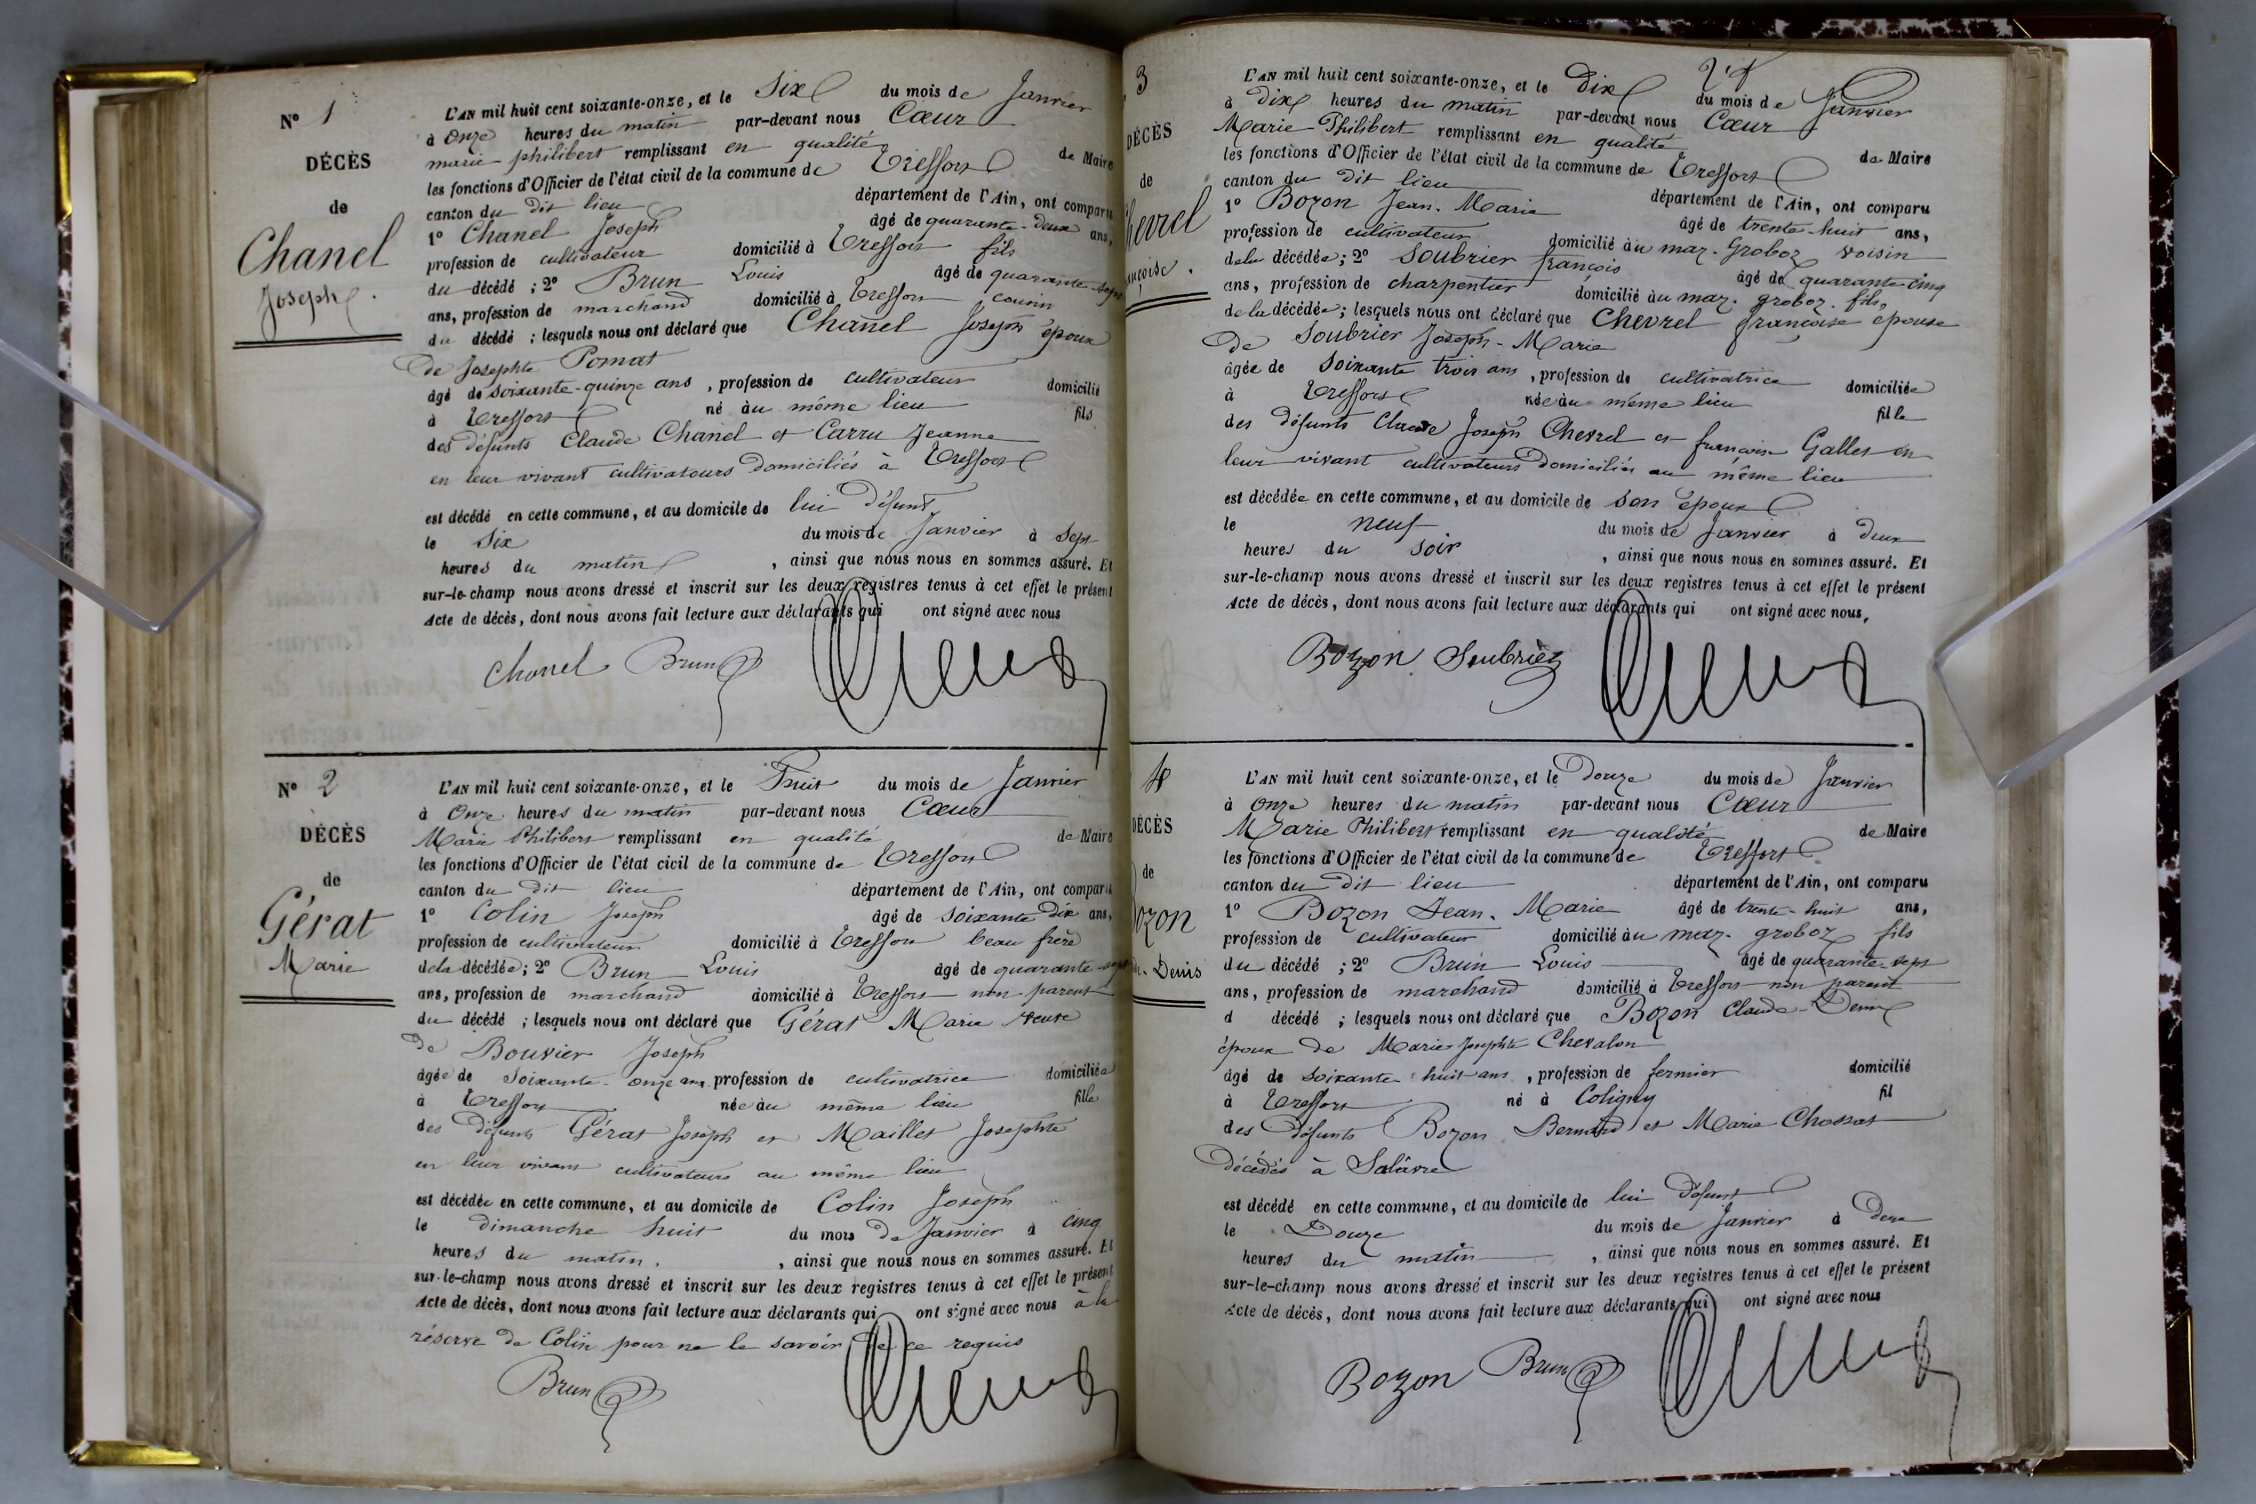 N° 1
DÉCÈS
de
Chanel
Joseph.
L'AN mil huit cent soixante-onze, et le Six du mois de Janvier
à Onze heures du matin par-devant nous Cœur
marie philibert remplissant en qualité de Maire
les fonctions d'Officier de l'état civil de la commune de Treffort
canton du dit lieu département de l'Ain, ont comparu
1° Chanel Joseph âgé de quarante-deux ans,
profession de cultivateur domicilié à Treffort fils
du décédé ; 2° Brun Louis âgé de quarante-sept
ans, profession de marchand domicilié à Treffort cousin
du décédé ; lesquels nous ont déclaré que Chanel Joseph époux
de Josephte Pomat
âgé de soixante-quinze ans, profession de cultivateur domicilié
à Treffort né au même lieu fils
des défunts Claude Chanel et Carru Jeanne
en leur vivant cultivateurs domiciliés à Treffort
est décédé en cette commune, et au domicile de lui défunt,
le Six du mois de Janvier à Sept
heures du matin, ainsi que nous nous en sommes assuré. Et
sur-le-champ nous avons dressé et inscrit sur les deux registres tenus à cet effet le présent
Acte de décès, dont nous avons fait lecture aux déclarants qui ont signé avec nous
Chanel Brun
N° 2
DÉCÈS
de
Gérat
Marie
L'AN mil huit cent soixante-onze, et le huit du mois de Janvier
à Onze heures du matin par-devant nous Cœur
Marie Philibert remplissant en qualité de Maire
les fonctions d'Officier de l'état civil de la commune de Treffort
canton du dit lieu département de l'Ain, ont comparu
1° Colin Joseph âgé de soixante dix ans,
profession de cultivateur domicilié à Treffort beau frère
de la décédée; 2° Brun Louis âgé de quarante-sept
ans, profession de marchand domicilié à Treffort non parent
du décédé ; lesquels nous ont déclaré que Gérat Marie veuve
de Bouvier Joseph
âgée de soixante-onze ans profession de cultivatrice domiciliée
à Treffort née au même lieu fille
des défunts Gérat Joseph et Maillet Josephte
en leur vivant cultivateurs au même lieu
est décédée en cette commune, et au domicile de Colin Joseph
le dimanche huit du mois de Janvier à cinq
heures du matin, ainsi que nous nous en sommes assuré. Et
sur-le-champ nous avons dressé et inscrit sur les deux registres tenus à cet effet le présent
Acte de décès, dont nous avons fait lecture aux déclarants qui ont signé avec nous à la
réserve de Colin pour ne le savoir de ce requis
Brun
3
DÉCÈS
de
hevrel
ançoise.
L'AN mil huit cent soixante-onze, et le Dix du mois de Janvier
à Dix heures du matin par-devant nous Cœur
Marie Philibert remplissant en qualité de Maire
les fonctions d'Officier de l'état civil de la commune de Treffort
canton du dit lieu département de l'Ain, ont comparu
1° Bozon Jean-Marie âgé de trente-huit ans,
profession de cultivateur domicilié au maz-Groboz voisin
de la décédée; 2° Soubrier françois âgé de quarante-cinq
ans, profession de charpentier domicilié au maz-groboz. fils
de la décédée; lesquels nous ont déclaré que Chevrel françoise épouse
de Soubrier Joseph-Marie
âgée de soixante trois ans, profession de cultivatrice domiciliée
à Treffort née au même lieu fille
des défunts Claude Joseph Chevrel et françoise Gallet en
leur vivant cultivateurs domiciliés au même lieu
est décédée en cette commune, et au domicile de son époux
le neuf du mois de Janvier à deux
heures du soir, ainsi que nous nous en sommes assuré. Et
sur-le-champ nous avons dressé et inscrit sur les deux registres tenus à cet effet le présent
Acte de décès, dont nous avons fait lecture aux déclarants qui ont signé avec nous,
Bozon Soubrier
4
DÉCÈS
de
ozon
de-Denis
L'AN mil huit cent soixante-onze, et le Douze du mois de Janvier
à Onze heures du matin par-devant nous Cœur
Marie Philibert remplissant en qualité de Maire
les fonctions d'Officier de l'état civil de la commune de Treffort
canton du dit lieu département de l'Ain, ont comparu
1° Bozon Jean-Marie âgé de trente-huit ans,
profession de cultivateur domicilié au maz-groboz fils
du décédé ; 2° Brun Louis âgé de quarante-sept
ans, profession de marchand domicilié à Treffort non parent
d décédé ; lesquels nous ont déclaré que Bozon Claude-Denis
époux de Marie-Josephte Chevalon
âgé de soixante huit ans, profession de fermier domicilié
à Treffort né à Coligny fil
des défunts Bozon Bernard et Marie Chossat
décédés à Salavre
est décédé en cette commune, et au domicile de lui défunt
le Douze du mois de Janvier à deux
heures du matin, ainsi que nous nous en sommes assuré. Et
sur-le-champ nous avons dressé et inscrit sur les deux registres tenus à cet effet le présent
Acte de décès, dont nous avons fait lecture aux déclarants qui ont signé avec nous
Bozon Brun